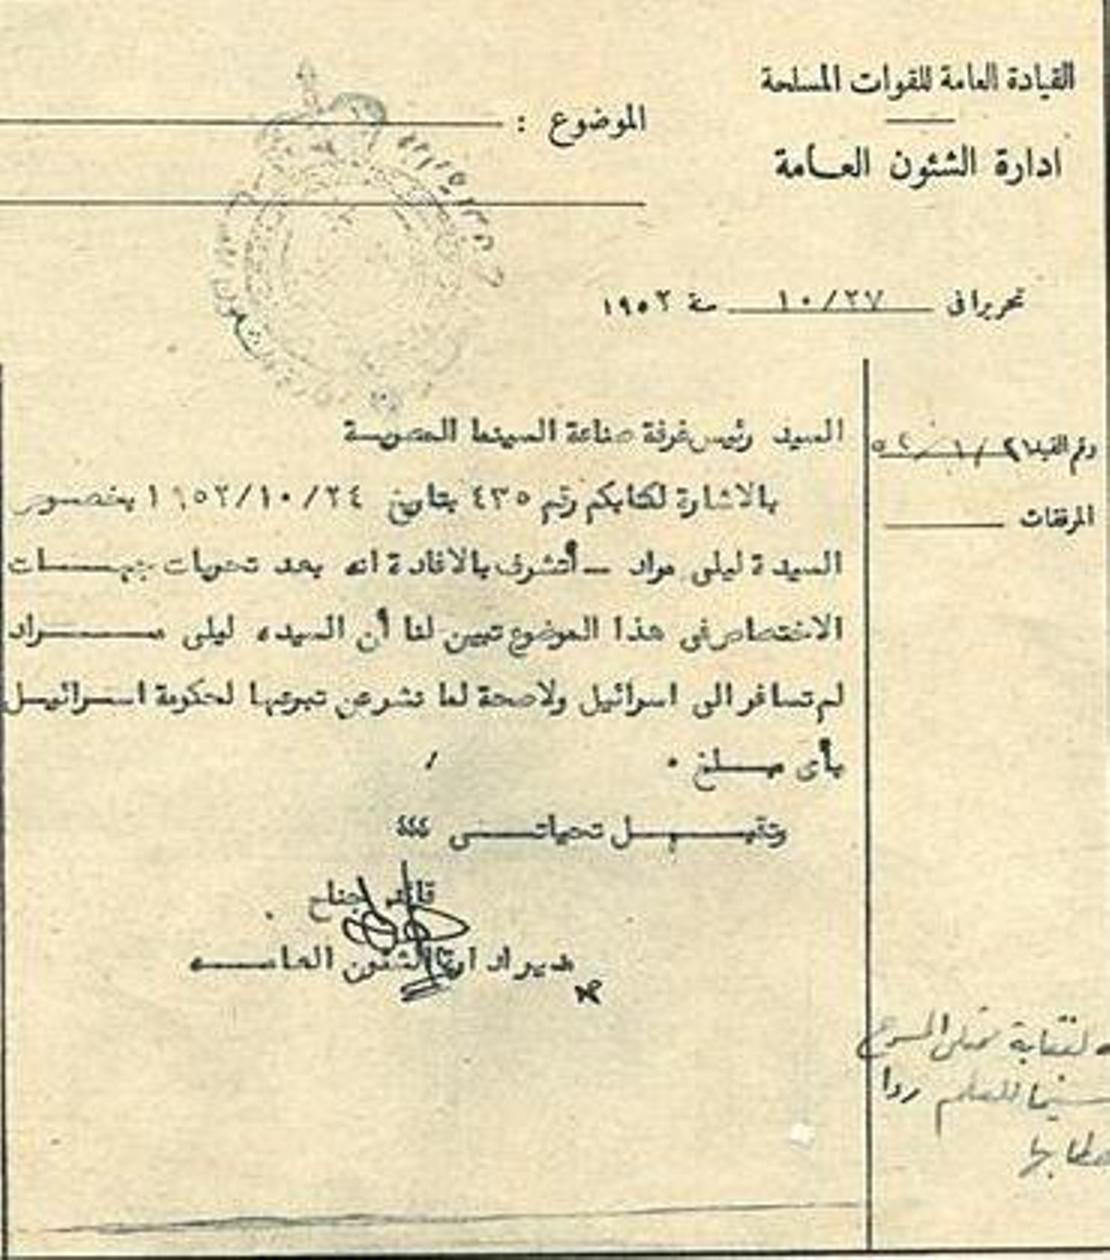 القيادة العامة للقوات المسلحة
ادارة الشئون العامة
الموضوع :
تحريرا فى ١٠/٢٧ سنة ١٩٥٢
رقم القيد
المرفقات
السيد رئيس غرفة صناعة السينما المصرية
بالاشارة لكتابكم رقم ٤٣٥ بتاريخ ١٩٥٢/١٠/٢٤ بخصوص
السيدة ليلى مراد ــ أتشرف بالافادة انه بعد تحريات جهــــات
الاختصاص فى هذا الموضوع تبين لنا أن السيده ليلى مــــــراد
لم تسافر الى اسرائيل ولاصحة لما نشر عن تبرعها لحكومة اســرائيــل
بأى مبــلغ ٠
وتقبــــــل تحياتــــــى ؛؛؛
قائد جناح
مدير ادارة الشئون العامــــه
لنقابة ممثلى المسرح
سينما للعلم ردا
خطابها